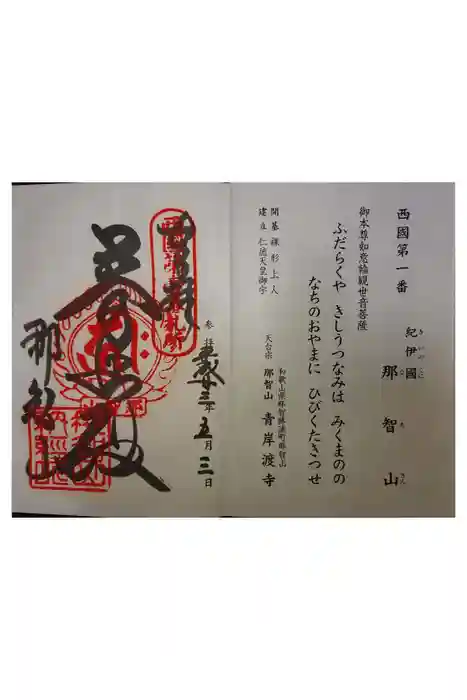 西國第一番
紀伊國 那智山
きいのくに なちさん
御本尊如意輪観世音菩薩
ふだらくや きしうつなみは みくまのの
なちのおやまに ひびくたきつせ
開基 裸形上人
建立 仁徳天皇御宇
和歌山県那智勝浦町那智山
天台宗 那智山 青岸渡寺
参拝 平成廿三年五月三日
奉拝
那智山